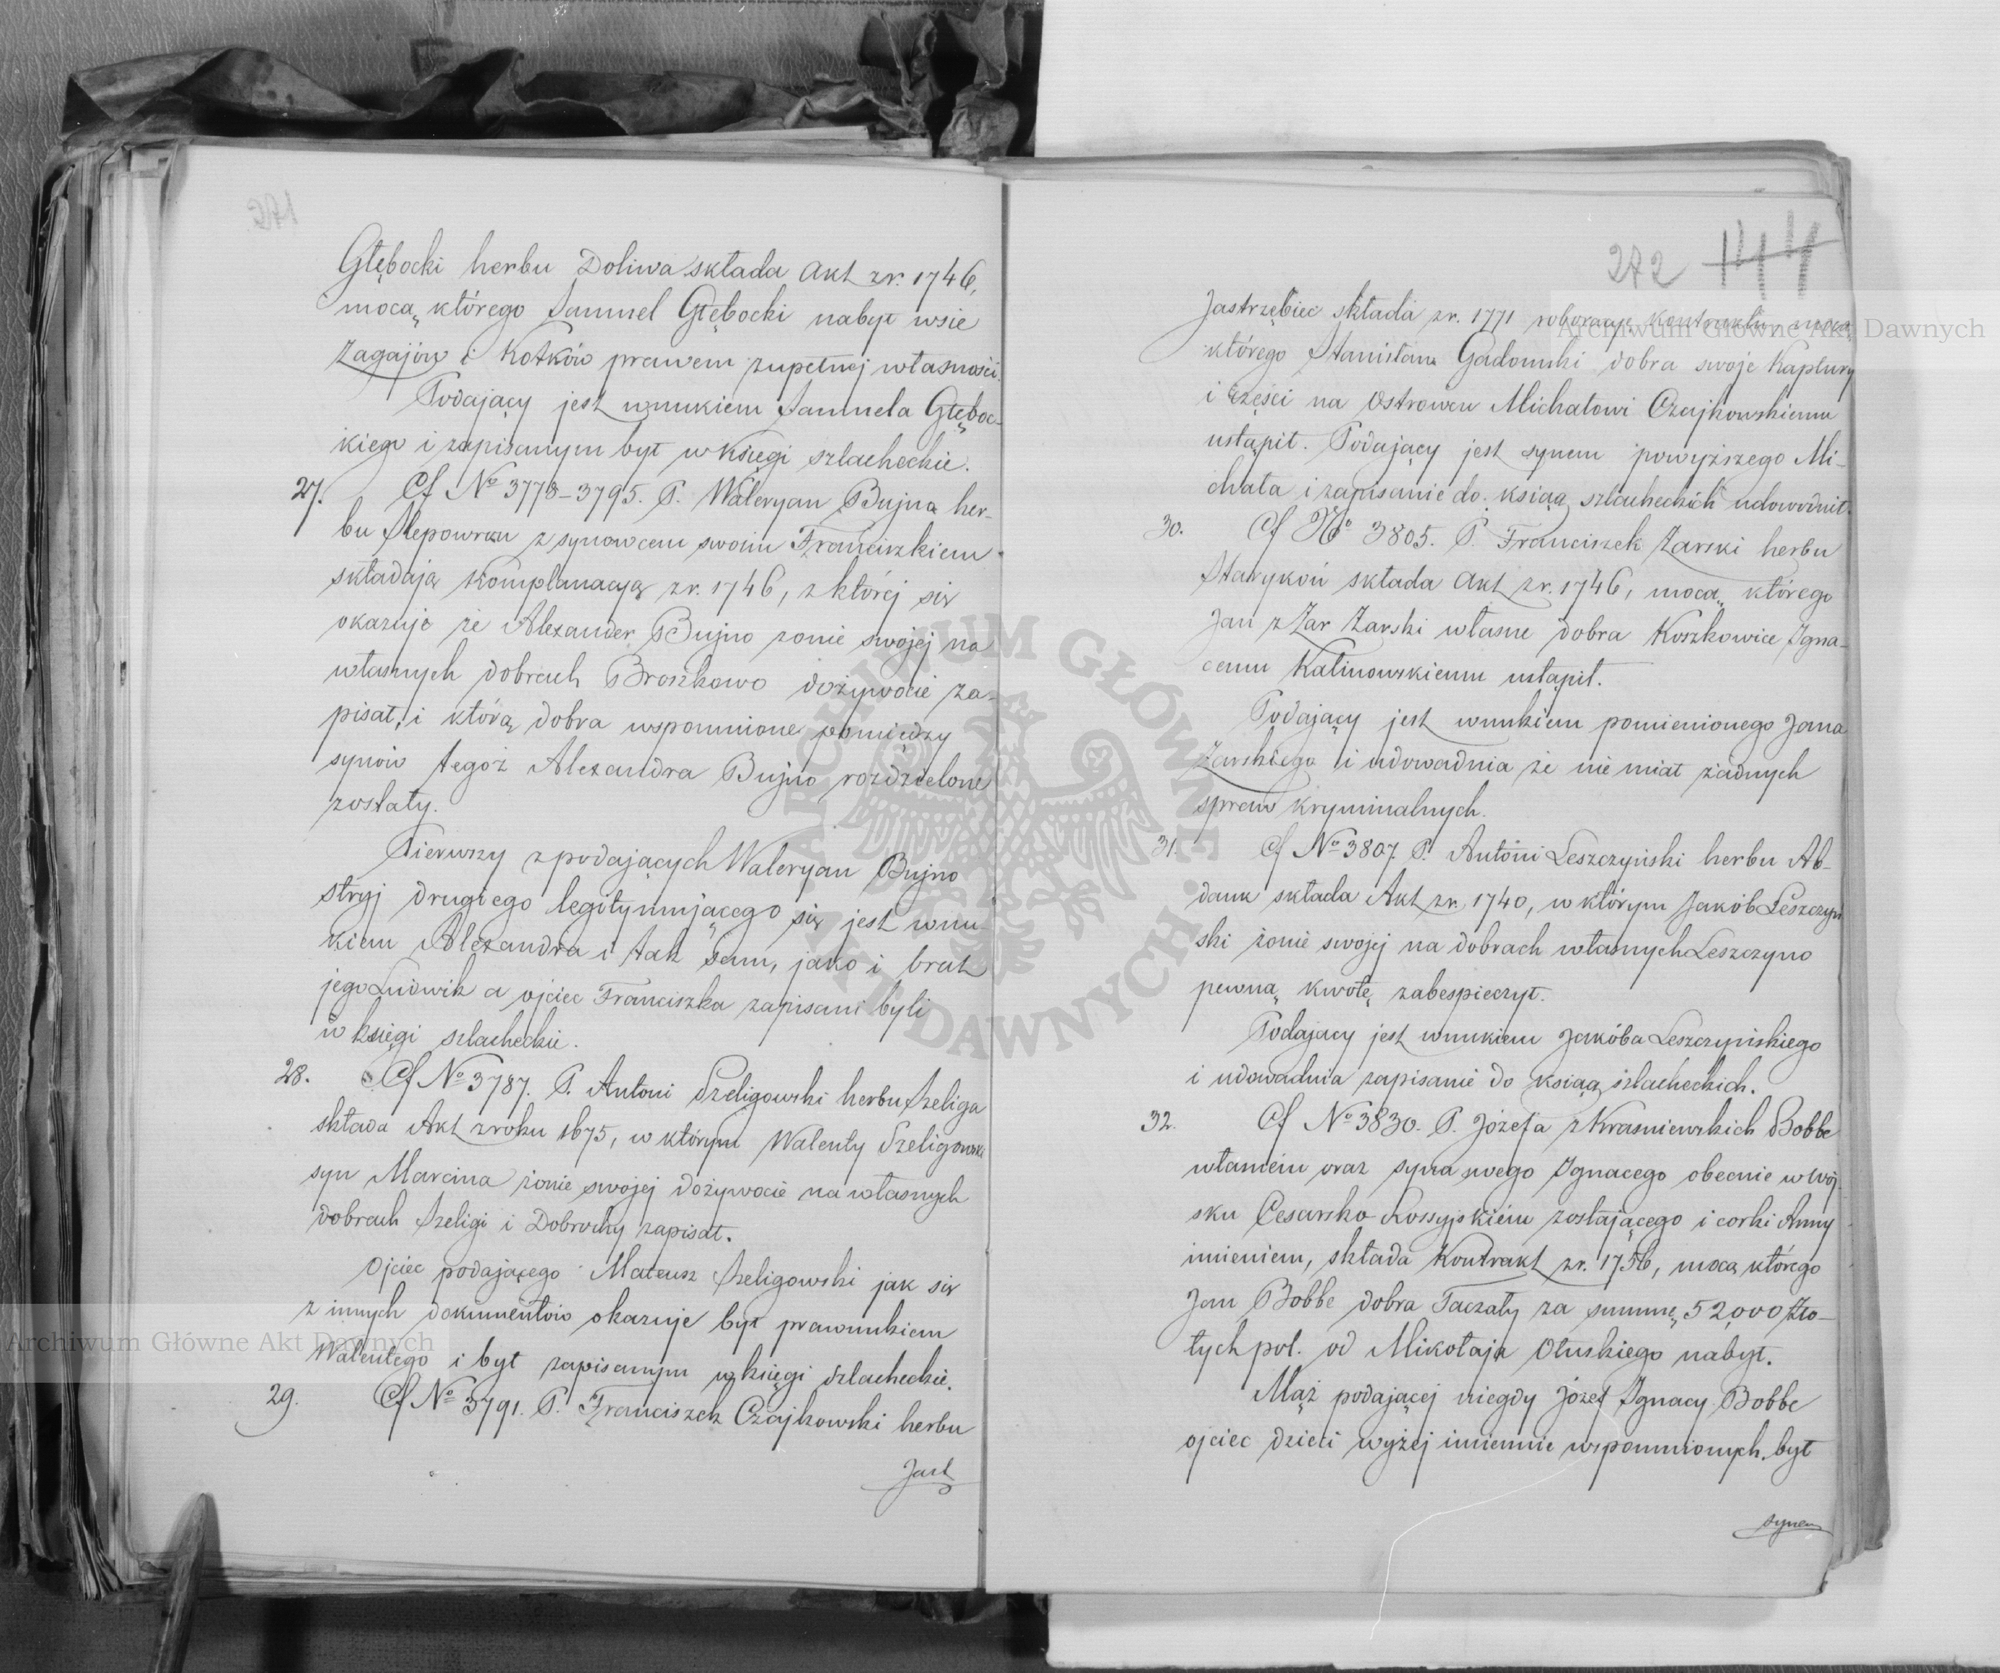 Głębocki herbu Doliwa składa Akt zr. 1746,
mocą którego Samuel Głębocki nabył wsie
Zagajów i Kotków prawem zupełnej własności.
Podający jest wnukiem Samuela Głęboc-
kiego i zapisanym był w księgi szlacheckie.
27. Cf No 3778-3795. P. Waleryan Bujno her-
bu Ślepowron z synowcem swoim Franciszkiem
składają komplanacyą zr. 1746, z której się
okazuje że Alexander Bujno żonie swojej na
własnych dobrach Broszkowo dożywocie za-
pisał, i którą dobra wspomnione pomiędzy
synów tegoż Alexandra Bujno rozdzielone
zostały.
Pierwszy z podających Waleryan Bujno
stryj drugiego legitymującego się jest wnu-
kiem Alexandra i tak sam, jako i brat
jego Ludwik a ojciec Franciszka zapisani byli
w księgi szlacheckie.
28. Cf No 3787. P. Antoni Szeligowski herbu Szeliga
składa Akt z roku 1675, w którym Walenty Szeligowski
syn Marcina żonie swojej dożywocie na własnych
dobrach Szeligi i Dobrochy zapisał.
Ojciec podającego Mateusz Szeligowski jak się
z innych dokumentów okazuje był prawnukiem
Walentego i był zapisanym w księgi szlacheckie.
29. Cf No 3791. P. Franciszek Czajkowski herbu
Jast
272 144
Jastrzębiec składa zr. 1771 roboracyę kontraktu, mocą
którego Stanisław Gadomski dobra swoje Kaptury
i części na Ostrowcu Michałowi Czajkowskiemu
ustąpił. Podający jest synem powyższego Mi-
chała i zapisanie do ksiąg szlacheckich udowodnił.
30. Cf No 3805. P. Franciszek Żarski herbu
Starykoń składa Akt zr. 1746, mocą którego
Jan z Żar Żarski własne dobra Koszkowice Igna-
cemu Kalinowskiemu ustąpił.
Podający jest wnukiem pomienionego Jana
Żarskiego i udowadnia że nie miał żadnych
spraw kryminalnych.
31. Cf No 3807. P. Antoni Leszczyński herbu Ab-
dank składa Akt zr. 1740, w którym Jakób Leszczyń
ski żonie swojej na dobrach własnych Leszczyno
pewną kwotę zabespieczył.
Podający jest wnukiem Jakóba Leszczyńskiego
i udowadnia zapisanie do ksiąg szlacheckich.
32. Cf No 3830. P. Józefa z Kraśniewskich Bobbe
własnem oraz syna swego Ignacego obecnie w Woj
sku Cesarsko Rossyjskiem zostającego i corki Anny
imieniem, składa Kontrakt zr. 1756, mocą którego
Jan Bobbe dobra Taczały za summę 52,000 Zło-
tych pol. od Mikołaja Otuskiego nabył.
Mąż podającej niegdy Józef Ignacy Bobbe
ojciec dzieci wyżej imiennie wspomnionych był
synem
Archiwum Główne Akt Dawnych
Archiwum Główne Akt Dawnych
ARCHIWUM GŁÓWNE AKT DAWNYCH